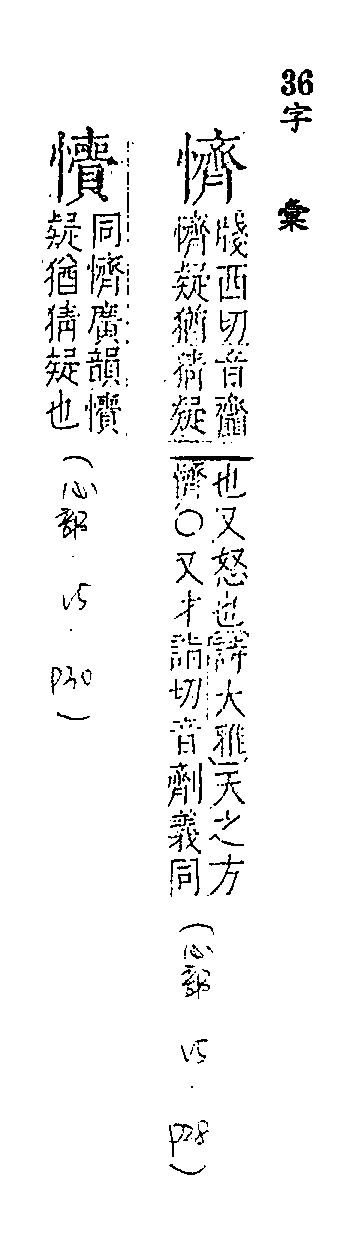 36字彙
懠
牋西切音齏
懠疑猶猜疑
也又怒也詩大雅天之方
懠○又才詣切音劑義同
(心部 V5.P28)
同懠廣韻
疑猶猜疑也
(心部.V5.P30)